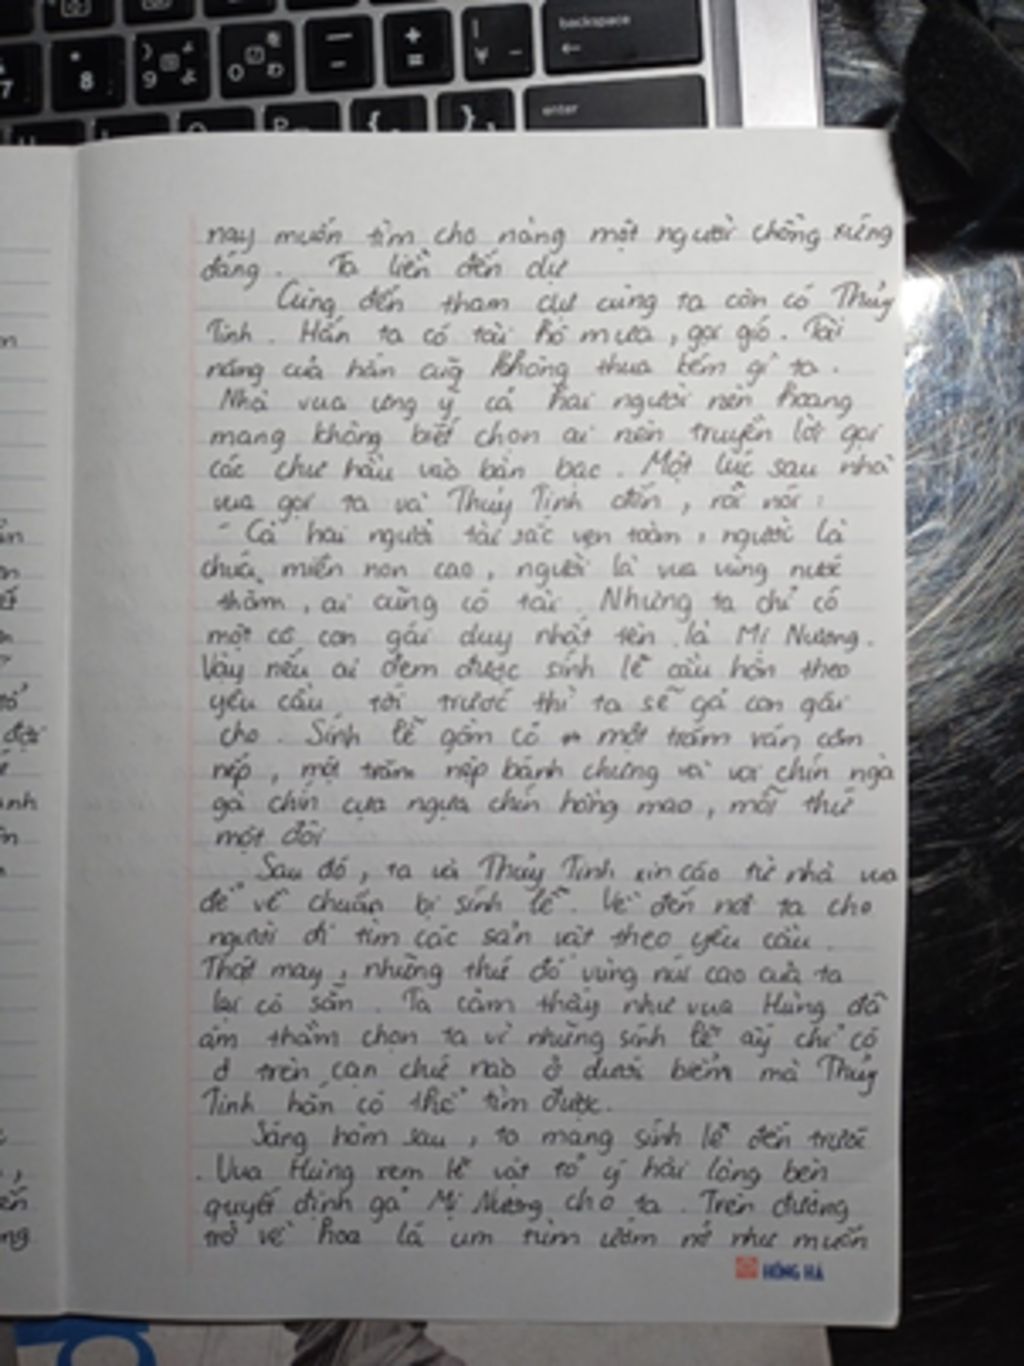 backspace
enter
7
8
9
0
nay muốn tìm cho nàng một người chồng xứng
đáng. Ta liền đến dự
Cùng đến tham dự cùng ta còn có Thủy
Tinh. Hắn ta có tài hô mưa, gọi gió. Tài
năng của hắn cũg không thua kém gì ta.
Nhà vua ưng ý cả hai người nên hoang
mang không biết chọn ai nên truyền lời gọi
các chư hầu vào bàn bạc. Một lúc sau nhà
vua gọi ta và Thủy Tinh đến, rồi nói:
- Cả hai người tài sắc vẹn toàn, người là
chúa miền non cao, người là vua vùng nước
thẳm, ai cũng có tài. Nhưng ta chỉ có
một cô con gái duy nhất tên là Mị Nương.
Vậy nếu ai đem được sính lễ cầu hôn theo
yêu cầu tới trước thì ta sẽ gả con gái
cho. Sính lễ gồm có một trăm ván cơm
nếp, một trăm nệp bánh chưng và voi chín ngà
gà chín cựa ngựa chín hồng mao, mỗi thứ
một đôi
Sau đó, ta và Thủy Tinh xin cáo từ nhà vua
để về chuẩn bị sính lễ. Về đến nơi ta cho
người đi tìm các sản vật theo yêu cầu.
Thật may, những thứ đó vùng núi cao của ta
lại có sẵn. Ta cảm thấy như vua Hùng đã
âm thầm chọn ta vì những sính lễ ấy chỉ có
ở trên cạn chứ nào ở dưới biểm mà Thủy
Tinh hắn có thể tìm được.
Sáng hôm sau, ta mang sính lễ đến trước
. Vua Hùng xem lễ vật tỏ ý hài lòng bèn
quyết định gả Mị Nương cho ta. Trên đường
trở về hoa lá um tùm ướm nở như muốn
HỒNG HÀ